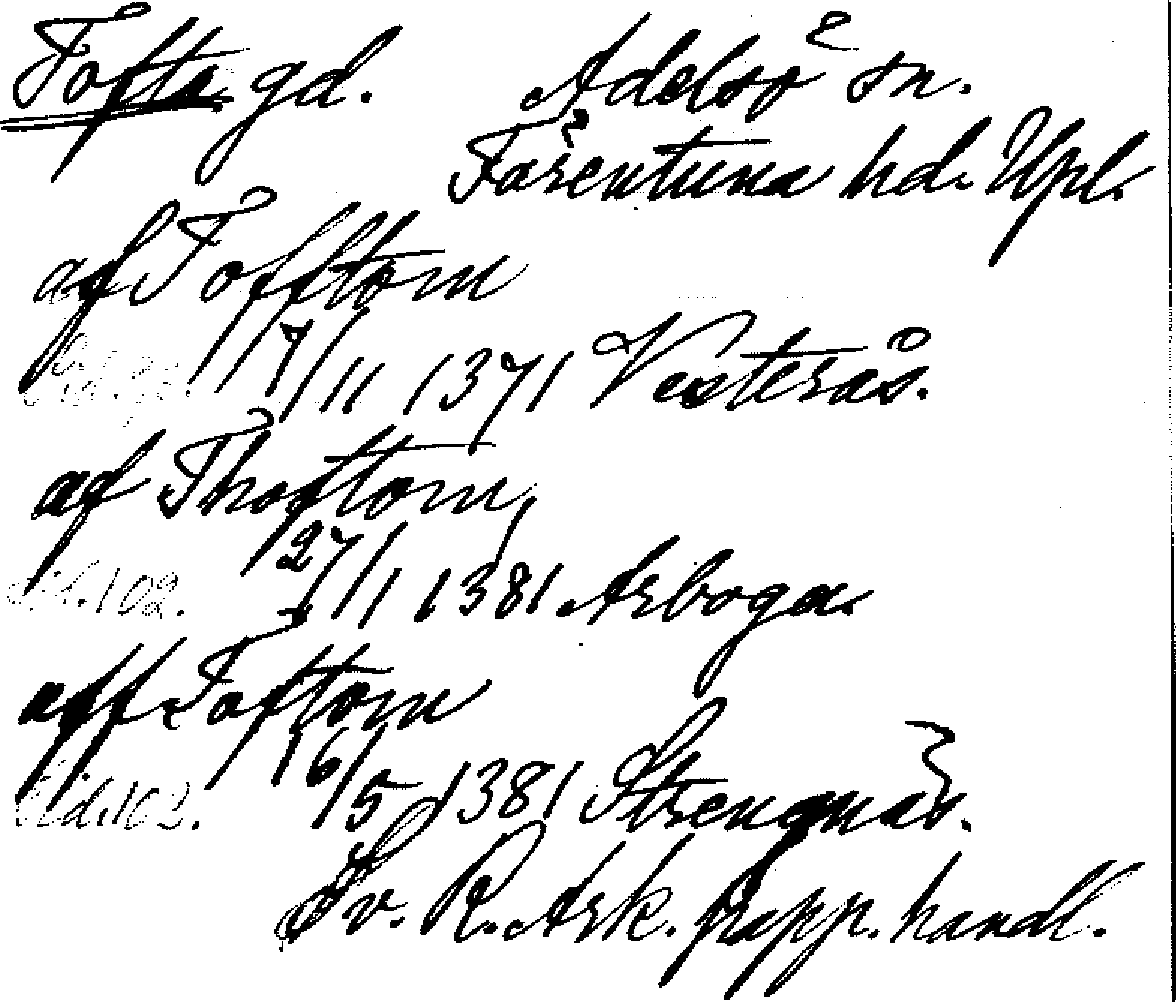 Tofta gd. Adelsö sn.
Färentuna hd. Upl.
af Tofftom
17/11 1371 Vesterås.
af Thoftom,
bil. 102. 27/1 1381 Arboga.
aff Toftom
bil. 102. 16/5 1381 Strengnäs.
Sv. R. Ark. papp. handl.